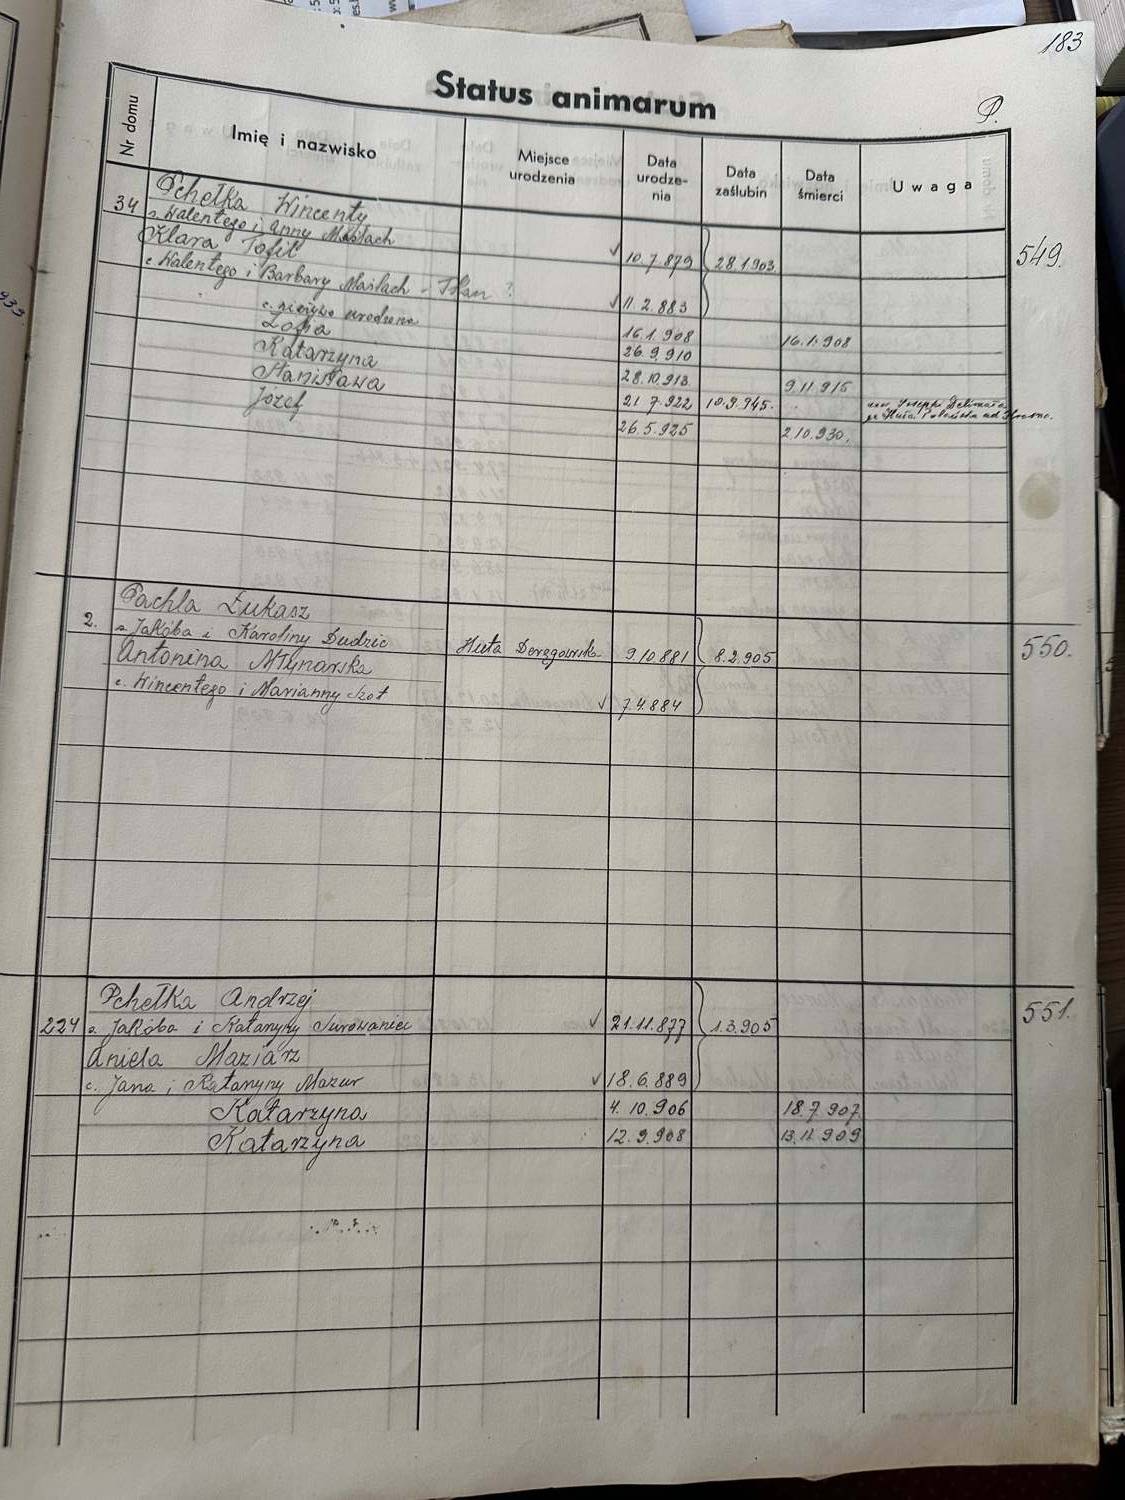 183
Status animarum
P.
Nr domu
Imię i nazwisko
Miejsce urodzenia
Data urodzenia
Data zaślubin
Data śmierci
Uwaga
34 Pchełka Wincenty
s. Walentego i Anny Maślach 10.7.879 28.1.903 549.
Klara Tofil
c. Walentego i Barbary Maślach - ? 11.2.883
c. nieżywo urodzona 16.1.908 16.1.908
Zofia 26.9.910
Katarzyna 28.10.913 9.11.915
Stanisława 21.7.922 10.9.945.
Józef 26.5.925 2.10.930.
Pachla Łukasz
2. s. Jakóba i Karoliny Dudzic Huta 9.10.881 8.2.905 550.
Antonina Młynarska
c. Wincentego i Marianny Szot 7.4.884
Pchełka Andrzej
224 s. Jakóba i Katarzyny Surowaniec 21.11.877 1.3.905 551.
Aniela Maziarz
c. Jana i Katarzyny Mazur 18.6.889
Katarzyna 4.10.906 18.7.907
Katarzyna 12.9.908 13.11.909